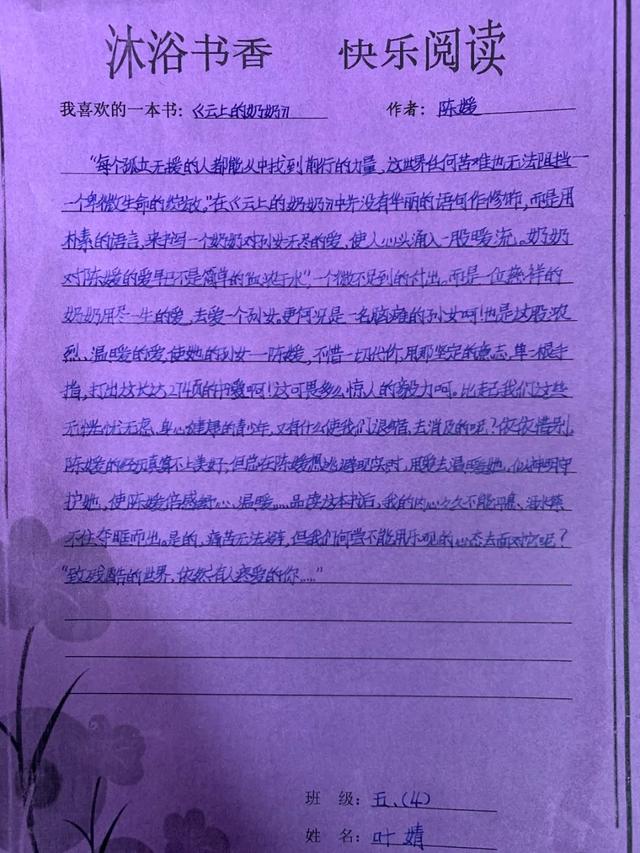 沐浴书香 快乐阅读
我喜欢的一本书：《云上的奶奶》 作者：陈媛
“每个孤立无援的人都能从中找到前行的力量，这世界任何苦难也无法阻挡
一个卑微生命的绽放。”在《云上的奶奶》中并没有华丽的语句作修饰，而是用
朴素的语言，来书写一个奶奶对孙女无尽的爱，使人心头涌入一股暖流。奶奶
对陈媛的爱早已不是简单的“血浓于水”，一个微不足到的付出。而是一位慈祥的
奶奶用尽一生的爱，去爱一个孙女。更何况是一名脑瘫的孙女呵！也是这股浓
烈、温暖的爱，使她的孙女一陈媛，不惜一切代价，用那坚定的意志，单一根手
指，打出这长达274页的啊！这可畏多么惊人的毅力呵。比起我们这些
无忧无虑、身心健康的青少年，又有什么使我们去消及的呢？依依惜别，
陈媛的经历真算不上美好，但总在陈媛想逃避现实时，用爱去温暖她，似神明守
护她，使陈媛倍感舒心、温暖……品读这本书后，我的内心久久不能平息，泪水禁
不住夺眶而出。是的，痛苦无法，但我们何尝不能用乐观的心态去面对它呢？
“致残酷的世界，依然有人疼爱的你……”
班 级：五、（4）
姓 名：叶婧